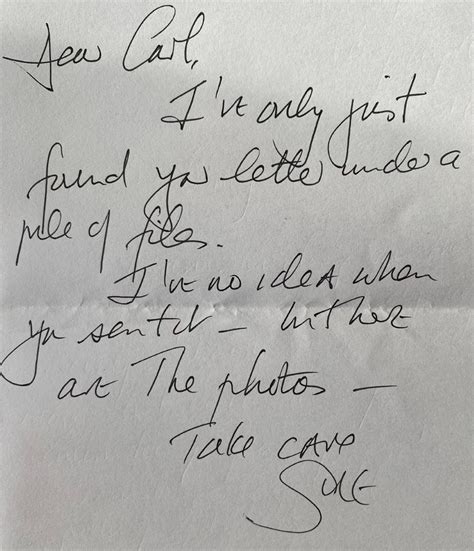 Dear Carl,
I've only just
found your letter under a
pile of files.
I've no idea when
you sent it – but here
are The photos –
Take care
SUE